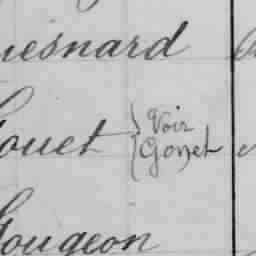 uesnard
Gouet { Voir
Gonet
Gougeon